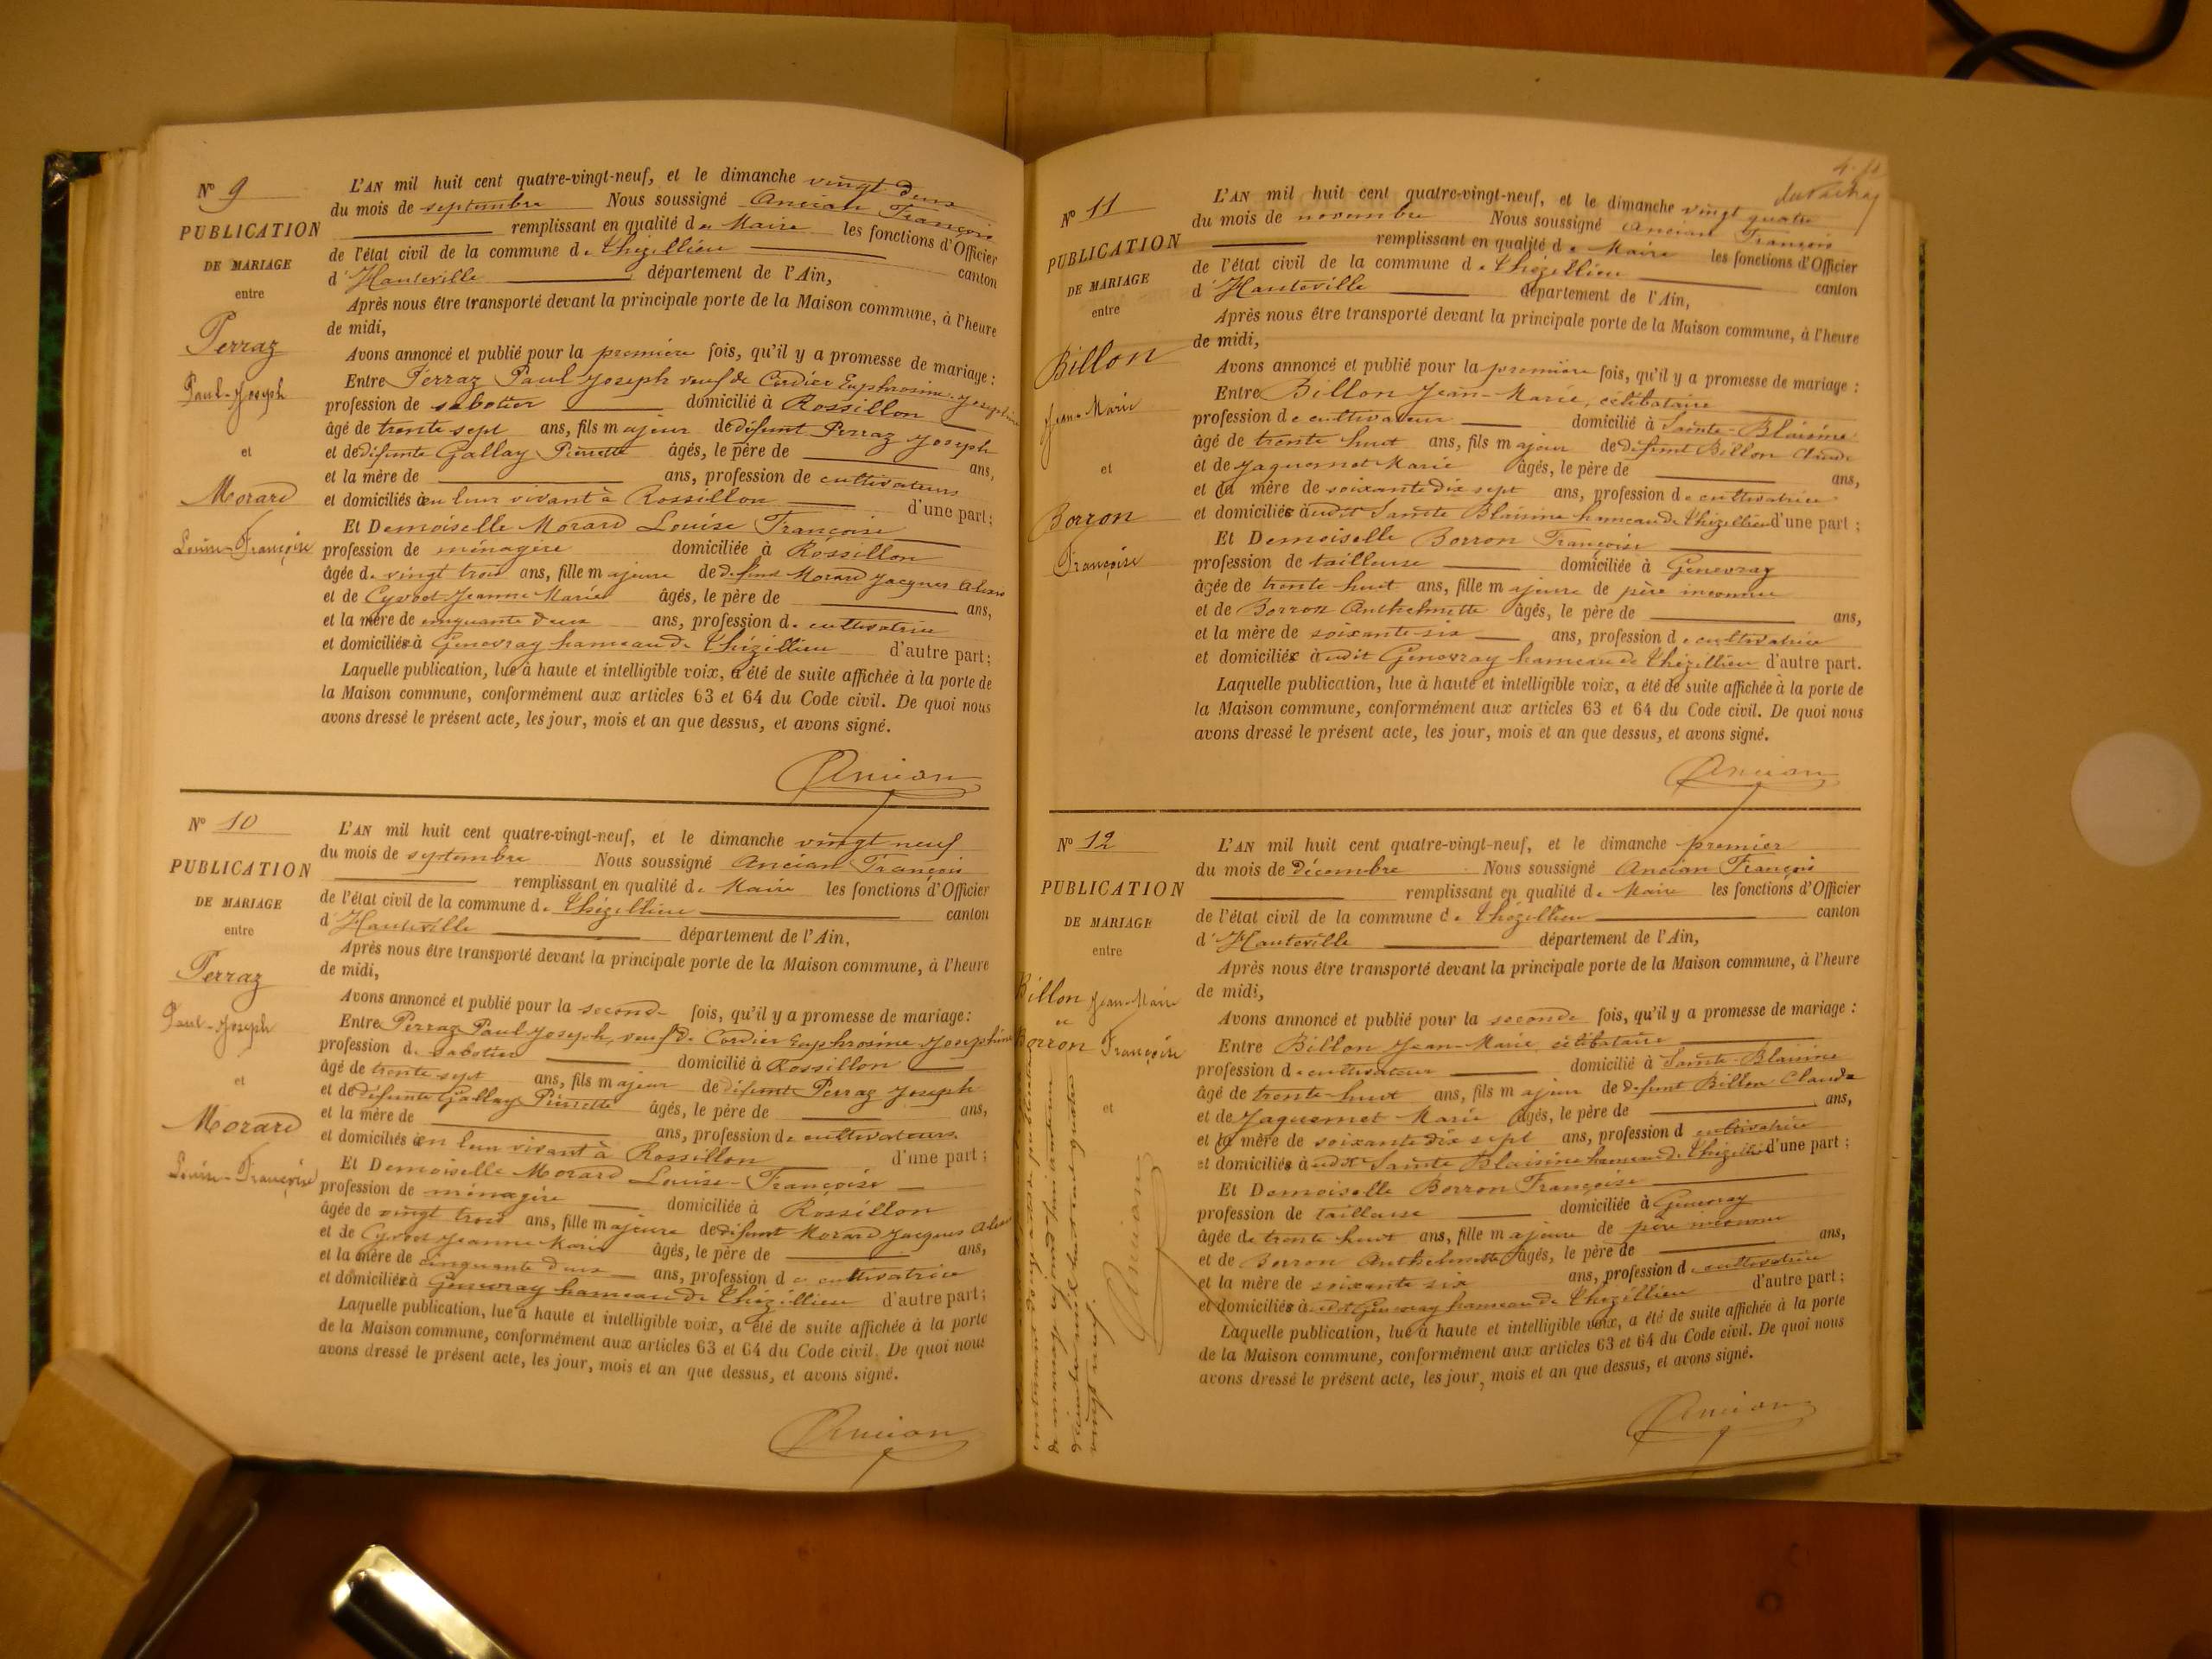 N° 9
PUBLICATION
DE MARIAGE
entre
Perraz
Paul-Joseph
et
Morard
Louise-Françoise
L'AN mil huit cent quatre-vingt-neuf, et le dimanche vingt deux
du mois de septembre Nous soussigné Ancian François
remplissant en qualité de Maire les fonctions d'Officier
de l'état civil de la commune de Thézillieu canton
d'Hauteville département de l'Ain,
Après nous être transporté devant la principale porte de la Maison commune, à l'heure
de midi,
Avons annoncé et publié pour la première fois, qu'il y a promesse de mariage :
Entre Perraz Paul Joseph veuf de Cordier Euphrosine-Joséphine
profession de sabotier domicilié à Rossillon
âgé de trente sept ans, fils majeur de défunt Perraz Joseph
et de défunte Gallay Pierrette âgés, le père de ans,
et la mère de ans, profession de cultivateurs
et domiciliés en leur vivant à Rossillon d'une part;
Et Demoiselle Morard Louise Françoise
profession de ménagère domiciliée à Rossillon
âgée de vingt trois ans, fille majeure de défunt Morard Jacques
et de Cyvoct Jeanne Marie âgés, le père de ans,
et la mère de cinquante deux ans, profession de cultivatrice
et domiciliés à Genevray hameau de Thézillieu d'autre part;
Laquelle publication, lue à haute et intelligible voix, a été de suite affichée à la porte de
la Maison commune, conformément aux articles 63 et 64 du Code civil. De quoi nous
avons dressé le présent acte, les jour, mois et an que dessus, et avons signé.
Ancian
N° 10
PUBLICATION
DE MARIAGE
entre
Perraz
Paul-Joseph
et
Morard
Louise-Françoise
L'AN mil huit cent quatre-vingt-neuf, et le dimanche vingt neuf
du mois de septembre Nous soussigné Ancian François
remplissant en qualité de Maire les fonctions d'Officier
de l'état civil de la commune de Thézillieu canton
d'Hauteville département de l'Ain,
Après nous être transporté devant la principale porte de la Maison commune, à l'heure
de midi,
Avons annoncé et publié pour la seconde fois, qu'il y a promesse de mariage :
Entre Perraz Paul Joseph, veuf de Cordier Euphrosine Joséphine
profession de sabotier domicilié à Rossillon
âgé de trente sept ans, fils majeur de défunt Perraz Joseph
et de défunte Gallay Pierrette âgés, le père de ans,
et la mère de ans, profession de cultivateurs
et domiciliés en leur vivant à Rossillon d'une part;
Et Demoiselle Morard Louise-Françoise
profession de ménagère domiciliée à Rossillon
âgée de vingt trois ans, fille majeure de défunt Morard Jacques
et de Cyvoct Jeanne Marie âgés, le père de ans,
et la mère de cinquante deux ans, profession de cultivatrice
et domiciliés à Genevray hameau de Thézillieu d'autre part;
Laquelle publication, lue à haute et intelligible voix, a été de suite affichée à la porte
de la Maison commune, conformément aux articles 63 et 64 du Code civil. De quoi nous
avons dressé le présent acte, les jour, mois et an que dessus, et avons signé.
Ancian
N° 11
PUBLICATION
DE MARIAGE
entre
Billon
Jean-Marie
et
Borron
Françoise
L'AN mil huit cent quatre-vingt-neuf, et le dimanche vingt quatre
du mois de novembre Nous soussigné Ancian François
remplissant en qualité de Maire les fonctions d'Officier
de l'état civil de la commune de Thézillieu canton
d'Hauteville département de l'Ain,
Après nous être transporté devant la principale porte de la Maison commune, à l'heure
de midi,
Avons annoncé et publié pour la première fois, qu'il y a promesse de mariage :
Entre Billon Jean-Marie, célibataire
profession de cultivateur domicilié à Sainte-Blaisine
âgé de trente huit ans, fils majeur de défunt Billon Claude
et de Jaquemet Marie âgés, le père de ans,
et la mère de soixante dix sept ans, profession de cultivatrice
et domiciliés audit Sainte Blaisine hameau de Thézillieu d'une part;
Et Demoiselle Borron Françoise
profession de tailleuse domiciliée à Genevray
âgée de trente huit ans, fille majeure de père inconnu
et de Borron Anthelmette âgés, le père de ans,
et la mère de soixante-six ans, profession de cultivatrice
et domiciliés audit Genevray hameau de Thézillieu d'autre part.
Laquelle publication, lue à haute et intelligible voix, a été de suite affichée à la porte de
la Maison commune, conformément aux articles 63 et 64 du Code civil. De quoi nous
avons dressé le présent acte, les jour, mois et an que dessus, et avons signé.
Ancian
N° 12
PUBLICATION
DE MARIAGE
entre
Billon Jean-Marie
et
Borron Françoise
et
L'AN mil huit cent quatre-vingt-neuf, et le dimanche premier
du mois de décembre Nous soussigné Ancian François
remplissant en qualité de Maire les fonctions d'Officier
de l'état civil de la commune de Thézillieu canton
d'Hauteville département de l'Ain,
Après nous être transporté devant la principale porte de la Maison commune, à l'heure
de midi,
Avons annoncé et publié pour la seconde fois, qu'il y a promesse de mariage :
Entre Billon Jean-Marie célibataire
profession de cultivateur domicilié à Sainte-Blaisine
âgé de trente-huit ans, fils majeur de défunt Billon Claude
et de Jaquemet Marie âgés, le père de ans,
et la mère de soixante dix sept ans, profession d cultivatrice
et domiciliés audit Sainte Blaisine hameau de Thézillieu d'une part;
Et Demoiselle Borron Françoise
profession de tailleuse domiciliée à Genevray
âgée de trente huit ans, fille majeure de père inconnu
et de Borron Anthelmette âgés, le père de ans,
et la mère de soixante six ans, profession de cultivatrice
et domiciliés audit Genevray hameau de Thézillieu d'autre part;
Laquelle publication, lue à haute et intelligible voix, a été de suite affichée à la porte
de la Maison commune, conformément aux articles 63 et 64 du Code civil. De quoi nous
avons dressé le présent acte, les jour, mois et an que dessus, et avons signé.
Ancian
contenant douze actes de publication
de mariage
décembre mil huit cent quatre
vingt neuf.
Ancian